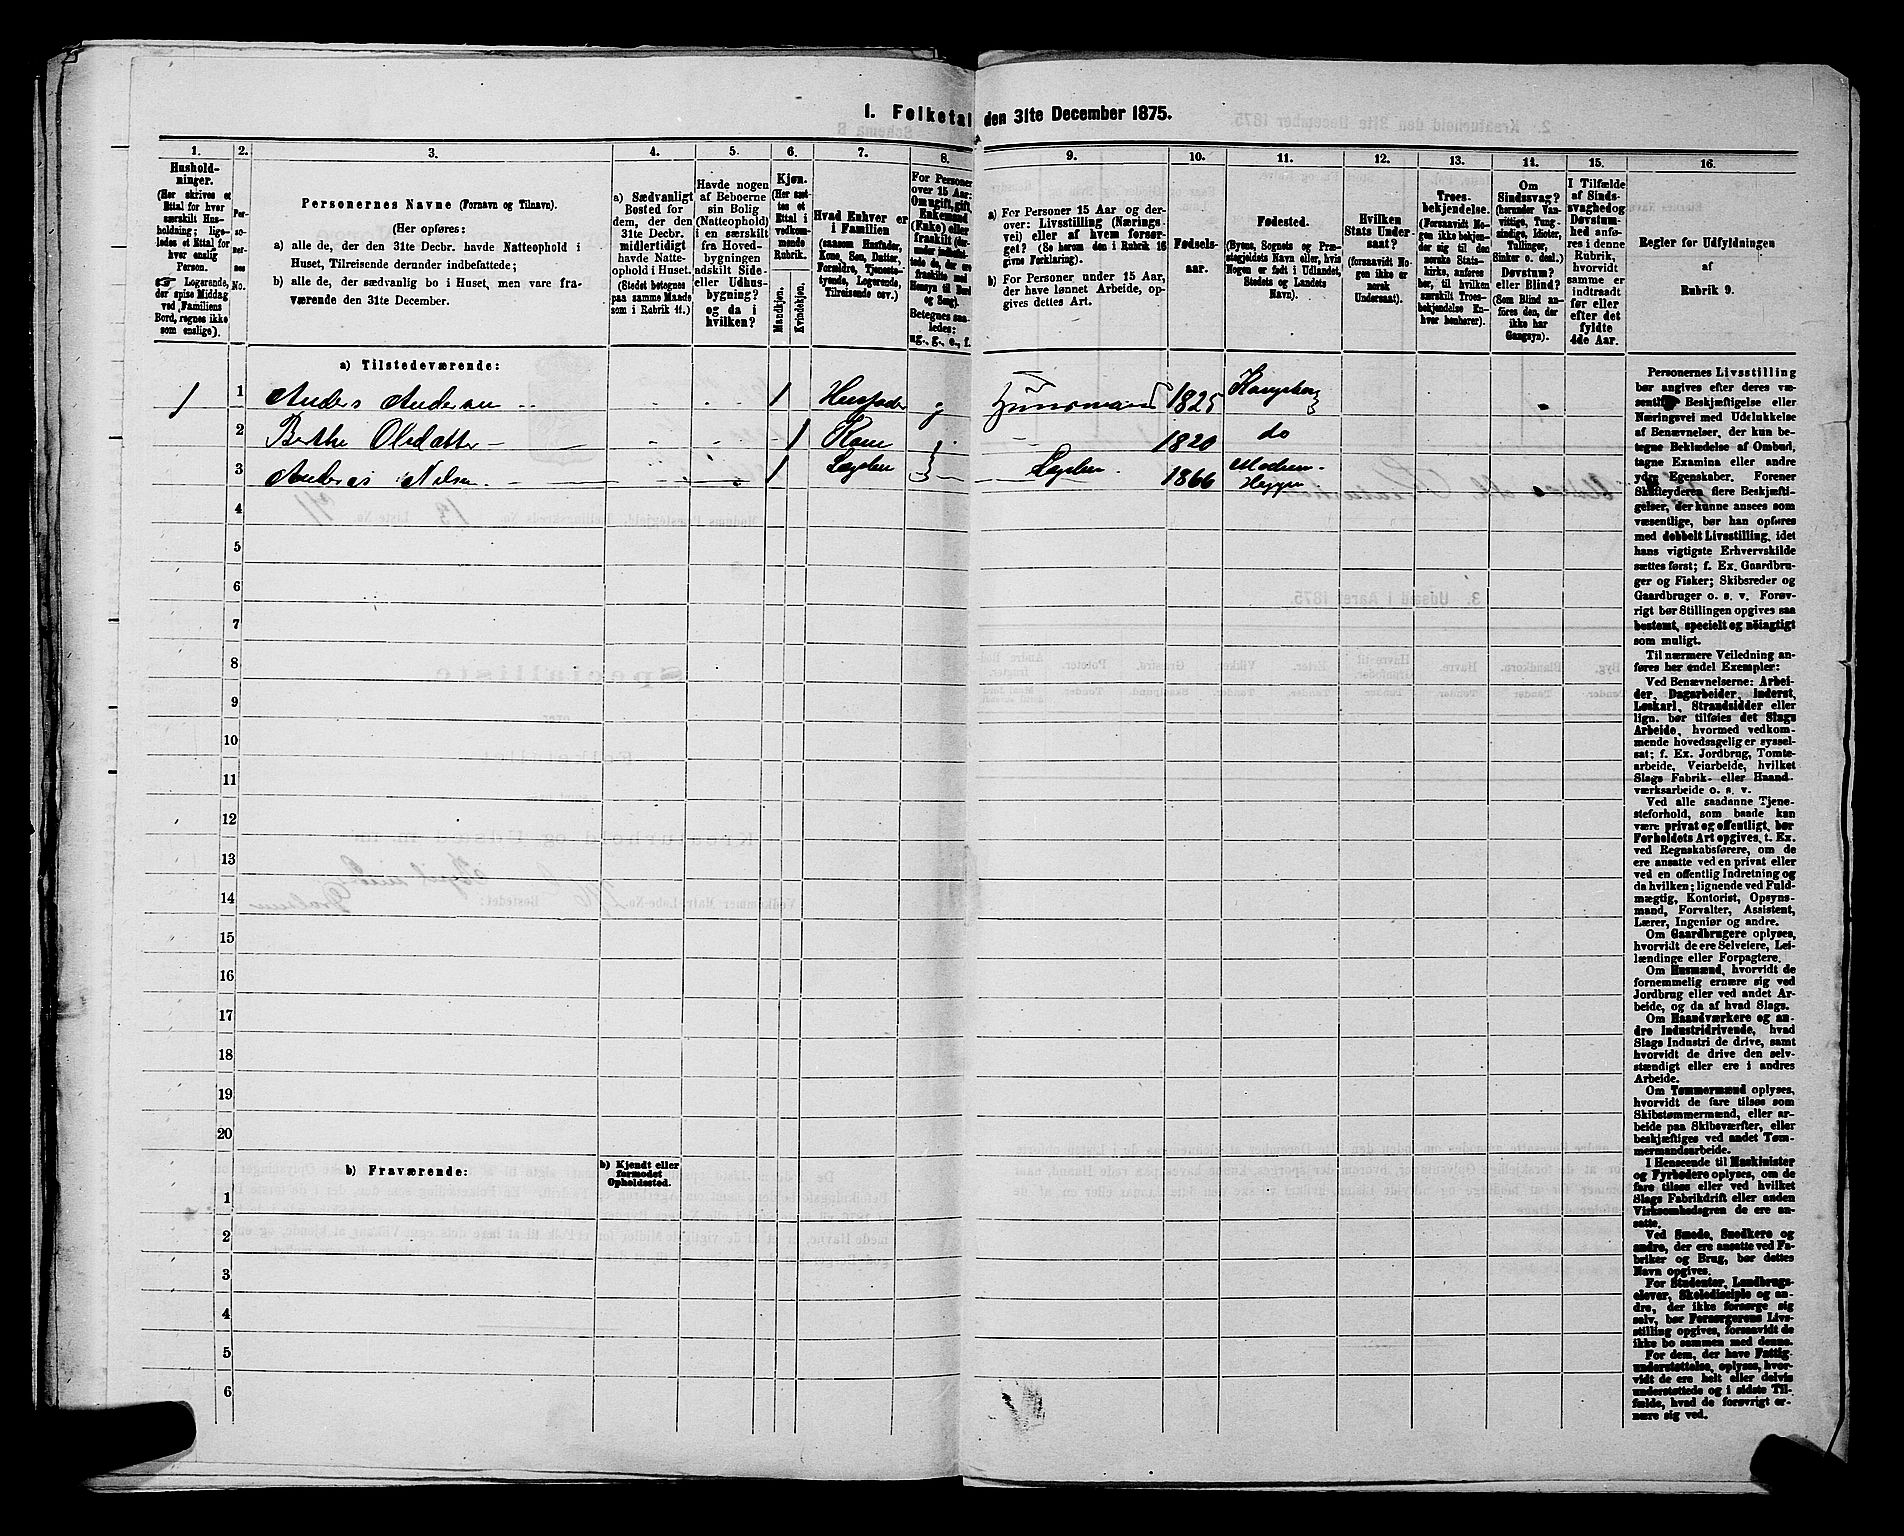 1. Folketal den 31te December 1875.
1. 2. 3. 4. 5. 6. 7. 8. 9. 10. 11. 12. 13. 14. 15. 16.
Hushold-
ninger.
(Her skrives et
Ettal for hver
særskilt Hus-
holdning; lige-
ledes et Ettal for
hver enslig
Person.
☞ Logerende,
der spise Middag
ved Familiens
Bord, regnes ikke
som enslige).
Per-
so-
ner-
nes
No.
Personernes Navne (Fornavn og Tilnavn).
(Her opføres:
a) alle de, der den 31te Decbr. havde Natteophold i
Huset, Tilreisende derunder indbefattede;
b) alle de, der sædvanlig bo i Huset, men vare fra-
værende den 31te December.
a) Sædvanligt
Bosted for
dem, der den
31te Decbr.
midlertidigt
havde Natte-
ophold i Huset.
(Stedet betegnes
paa samme Maade
som i Rubrik 11.)
Havde nogen
af Beboerne
sin Bolig
(Natteophold)
i en særskilt
fra Hoved-
bygningen
adskilt Side-
eller Udhus-
bygning?
og da i
hvilken?
Kjøn.
(Her sæt-
tes et
Ettal i
vedkom-
mende
Rubrik.
Mandkjøn.
Kvindekjøn.
Hvad Enhver er
i Familien
(saasom Husfader,
Kone, Søn, Datter,
Forældre, Tjeneste-
tyende, Logerende,
Tilreisende osv.)
For Personer
over 15 Aar:
Om ugift, gift,
Enkemand
(Enke) eller
fraskilt
Betegnes saa-
ledes:
ug., g., e., f.
a) For Personer 15 Aar og der-
over: Livsstilling (Nærings-
vei) eller af hvem forsør-
get? (Se herom den i Rubrik 16
givne Forklaring).
b) For Personer under 15 Aar,
der have lønnet Arbeide, op-
gives dettes Art.
Fødsels-
aar.
Fødested.
(Byens, Sognets og Præ-
stegjeldets Navn eller, hvis
Nogen er født i Udlandet,
Stedets og Landets
Navn).
Hvilken
Stats Under-
saat?
(forsaavidt No-
gen ikke er
norsk
Undersaat).
Troes-
bekjendelse.
(Forsaavidt No-
gen ikke bekjen-
der sig til den
norske Stats-
kirke, anføres
her, til hvilken
særskilt Troes-
bekjendelse En-
hver henhører).
Om
Sindssvag?
(herunder Van-
vittige, Tung-
sindige, Idioter,
Tullinger,
Sinker o. desl.)
Døvstum?
eller Blind?
(Som Blind an-
føres den, der
ikke har
Gangsyn).
I Tilfælde
af Sinds-
svaghed og
Døvstum-
hed anfø-
res i denne
Rubrik,
hvorvidt
samme er
indtraadt
før eller
efter det
fyldte
4de Aar.
Regler for Udfyldningen
af
Rubrik 9.
a) Tilstedeværende:
1 1 Anders Andersen 1 Husfader g Husmand 1825 Kongsberg
2 Berthe Olsdatter 1 Kone g 1820 do
3 Anders Nilsen 1 Lægslem Lægslem 1866 Modum
Heggen
4
5
6
7
8
9
10
11
12
13
14
15
16
17
18
19
20
b) Fraværende:
b) Kjendt eller
formodet
Opholdssted.
1
2
3
4
5
6
Personernes Livsstilling
bør angives efter deres væ-
sentlige Beskjæftigelse eller
Næringsvei med Udelukkelse
af Benævnelser, der kun be-
tegne Beklædelse af Ombud,
tagne Examina eller andre
ydre Egenskaber. Forener
Skatteyderen flere Beskjæfti-
gelser, der kunne ansees som
væsentlige, bør han opføres
med dobbelt Livsstilling, idet
hans vigtigste Erhvervskilde
sættes først; f. Ex. Gaardbru-
ger og Fisker; Skibsreder og
Gaardbruger o. s. v. Forøv-
rigt bør Stillingen opgives saa
bestemt, specielt og nøiagtigt
som muligt.
Til nærmere Veiledning an-
føres her endel Exempler:
Ved Benævnelserne: Arbei-
der, Dagarbeider, Inderst,
Løskarl, Strandsidder eller
lign. bør tilføies det Slags
Arbeide, hvormed vedkom-
mende hovedsagelig er syssel-
sat; f. Ex. Jordbrug, Tomte-
arbeide, Veiarbeide, hvilket
Slags Fabrik- eller Haand-
værksarbeide o. s. v.
Ved alle saadanne Tjene-
steforhold, som baade kan
være privat og offentligt, bør
Forholdets Art opgives, t. Ex.
ved Regnskabsførere, om de
ere ansatte ved en privat eller
ved en offentlig Indretning og
da hvilken; lignende ved Fuld-
mægtig, Kontorist, Opsyns-
mand, Forvalter, Assistent,
Lærer, Ingeniør og andre.
Om Gaardbrugere oplyses,
hvorvidt de ere Selveiere, Lei-
lændinge eller Forpagtere.
Om Husmænd, hvorvidt de
fornemmelig ernære sig ved
Jordbrug eller ved andet Ar-
beide, og da af hvad Slags.
Om Haandværkere og an-
dre Industridrivende, hvad
Slags Industri de drive, samt
hvorvidt de drive den selv-
stændigt eller ere i andres
Arbeide.
Om Tømmermænd oplyses,
hvorvidt de fare tilsøs som
Skibstømmermænd, eller ar-
beide paa Skibsværfter, eller
beskjæftiges ved andet Tøm-
mermandsarbeide.
I Henseende til Maskinister
og Fyrbødere oplyses, om de
fare tilsøs eller ved hvilket
Slags Fabrikdrift eller anden
Virksomhedsgren de ere an-
satte.
Ved Smede, Snedkere og
andre, der ere ansatte ved Fa-
briker og Brug, bør dettes
Navn opgives.
For Studenter, Landbrugs-
elever, Skoledisciple og an-
dre, der ikke forsørge sig
selv, bør Forsørgerens Livs-
stilling opgives, forsaavidt de
ikke bo sammen med denne.
For dem, der have Fattig-
understøttelse, oplyses, hvor-
vidt de ere helt eller delvis
understøttede og i sidste Til-
fælde, hvad de forøvrigt er-
nære sig ved.